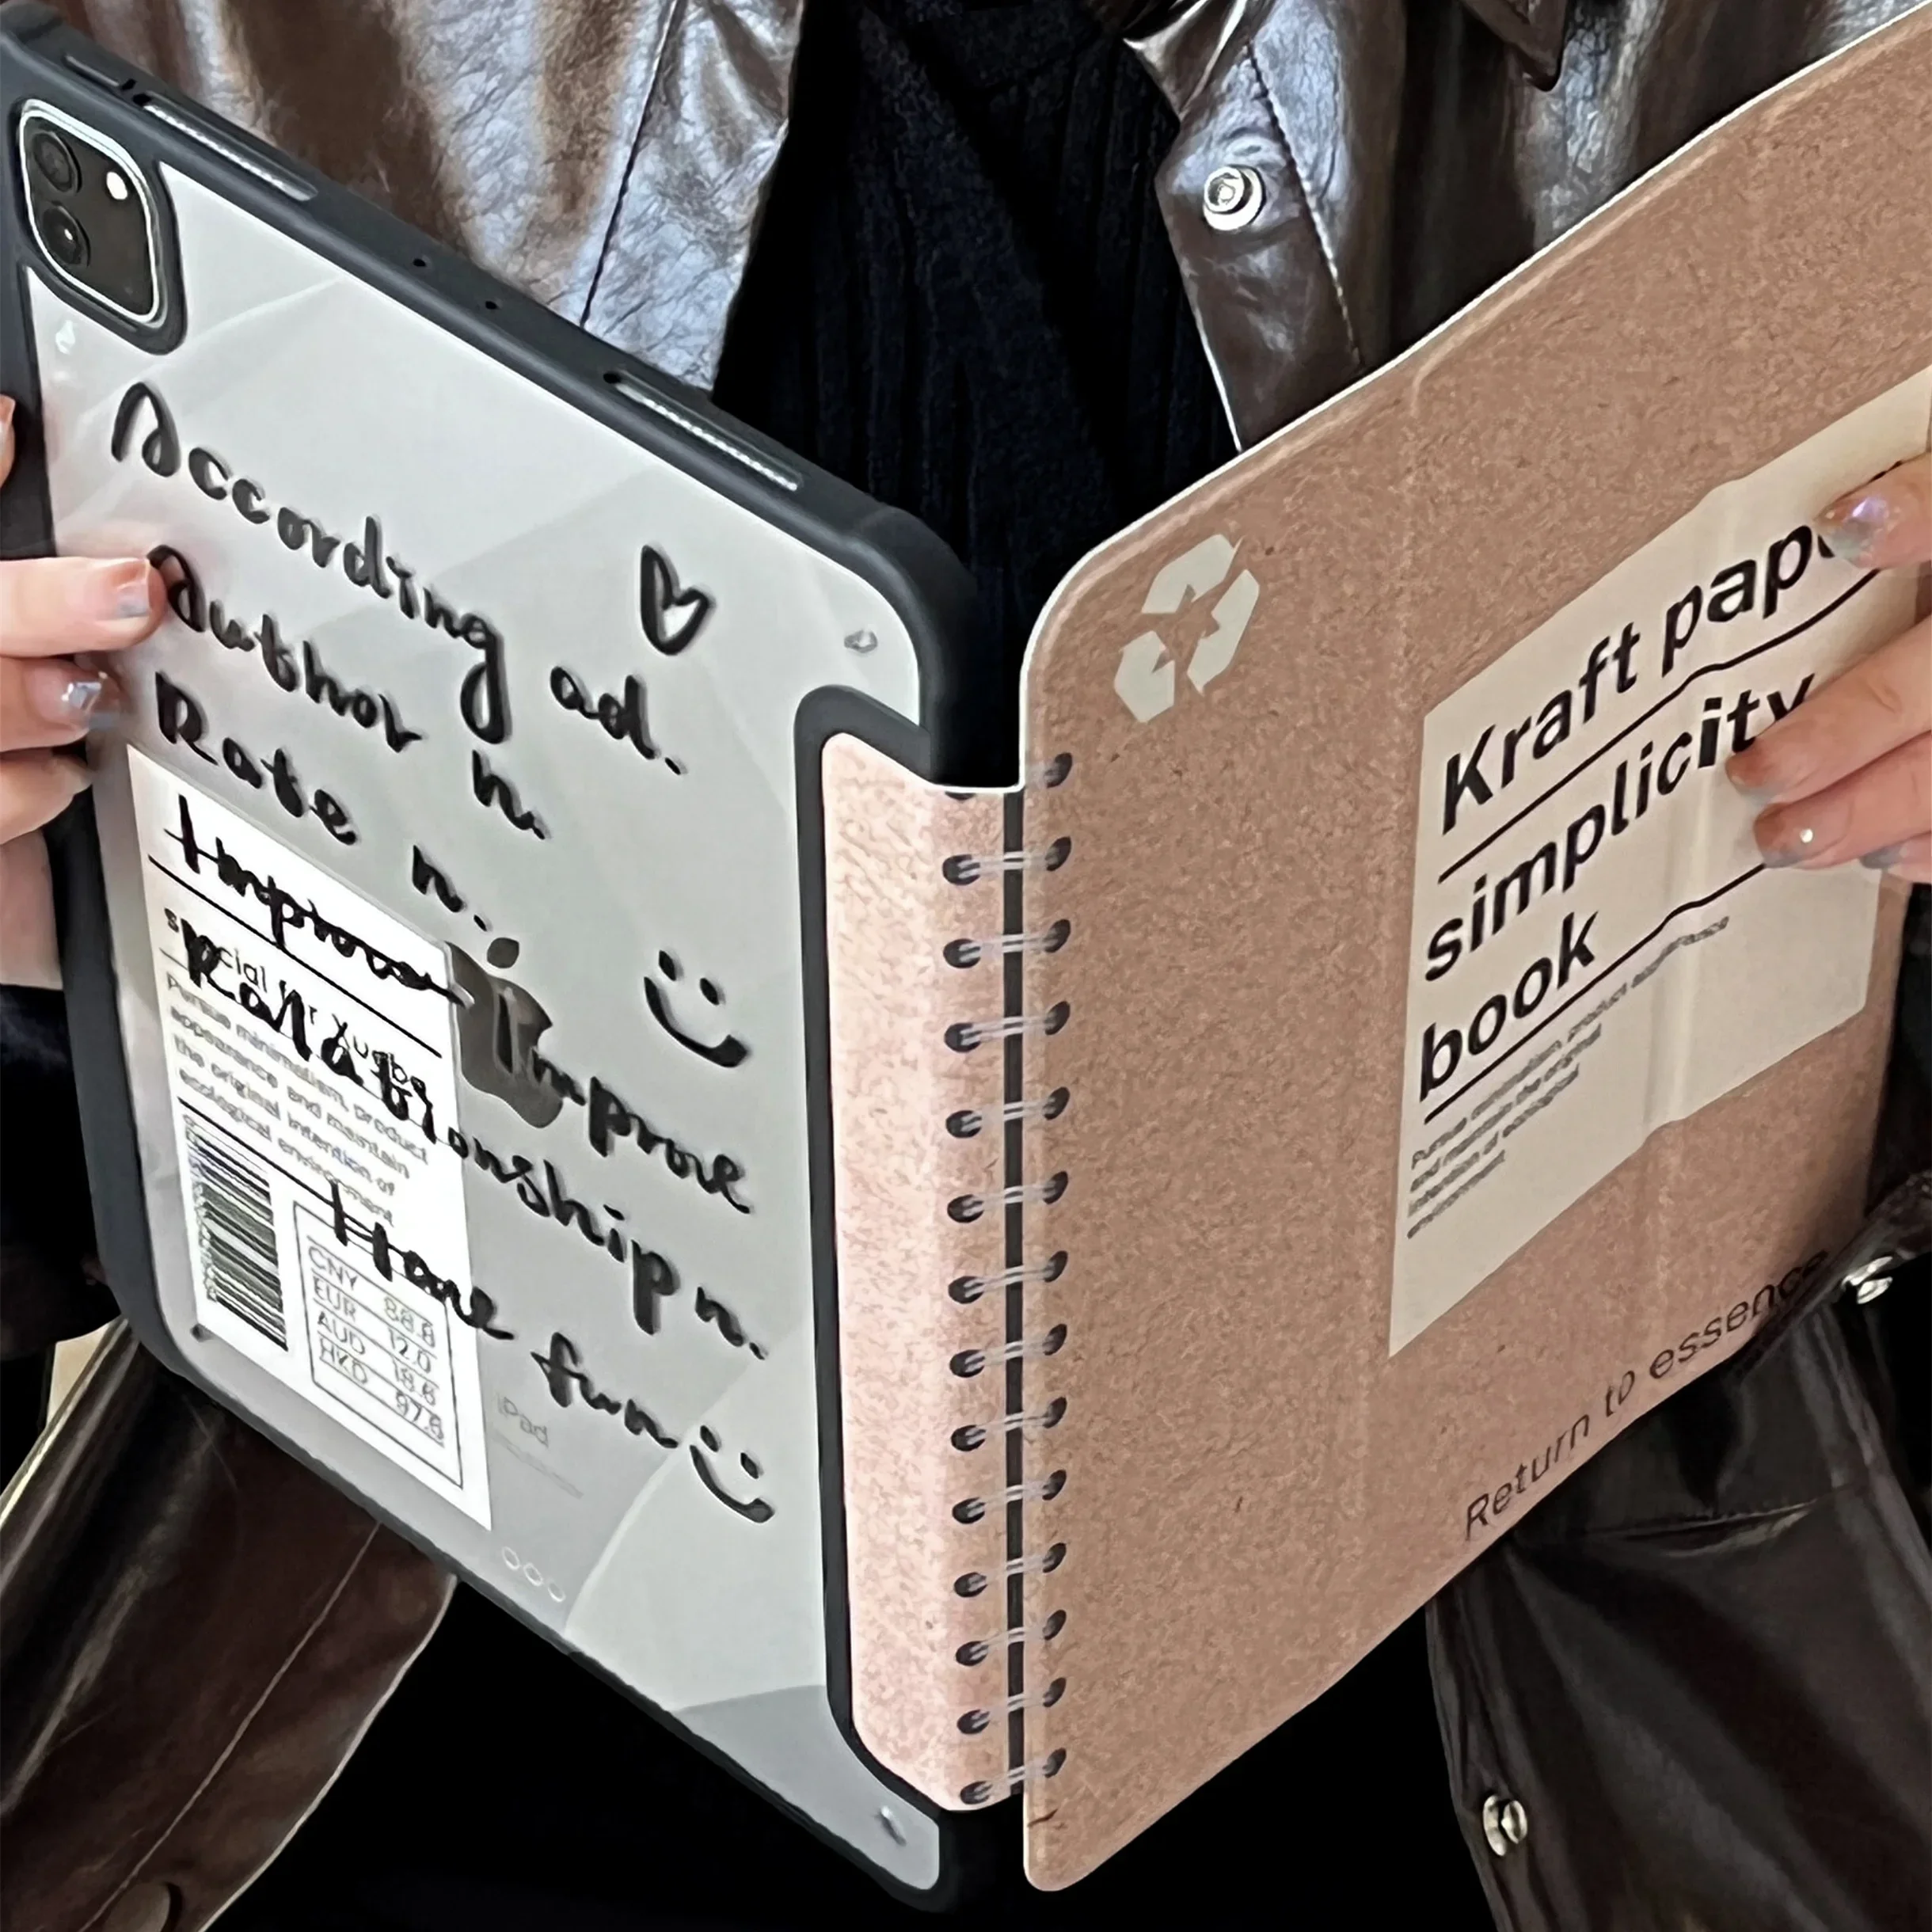 According ad.
Author n.
Rate n.
Improve
Improve
Relationship n.
Have fun
special for Xugba
Pursue minimalism, product
appearance and maintain
the original intention of
ecological environment
CNY 88.8
EUR 12.0
AUD 18.6
HKD 97.6
iPad
Kraft pape
simplicity
book
Pursue minimalism, product appearance
and maintain the original
intention of ecological
environment
Return to essence